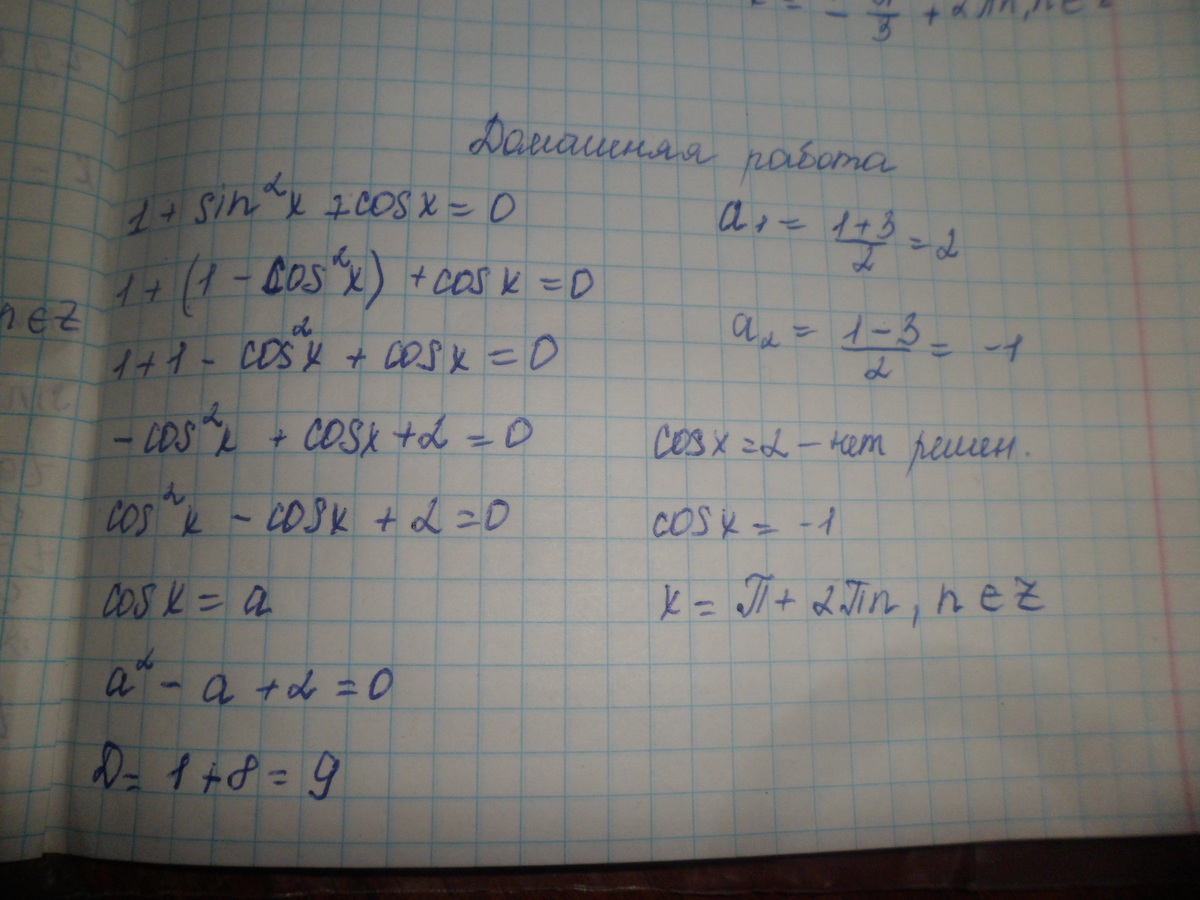 x = - π/3 + 2πn, n ∈ Z
Домашняя работа
1 + sin²x + cosx = 0
1 + (1 - cos²x) + cosx = 0
n ∈ Z
1 + 1 - cos²x + cosx = 0
-cos²x + cosx + 2 = 0
cos²x - cosx + 2 = 0
cosx = a
a² - a + 2 = 0
D = 1 + 8 = 9
a₁ = (1+3)/2 = 2
a₂ = (1-3)/2 = -1
cosx = 2 - нет решен.
cosx = -1
x = π + 2πn, n ∈ Z